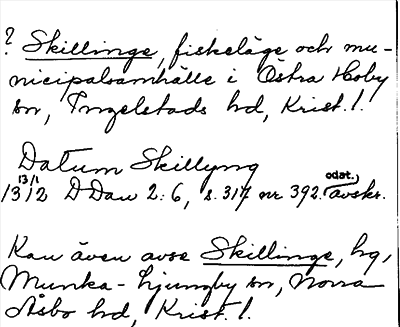 ? Skillinge, fiskeläge och mu-
nicipalsamhälle i Östra Hoby
sn, Ingelstads hd, Krist. l.
Datum Skillyng
13/1
1312 DDan 2:6, s. 317 nr 392. odat. avskr.
Kan även avse Skillinge, hg,
Munka-Ljungby sn, Norra
Åsbo hd, Krist. l.